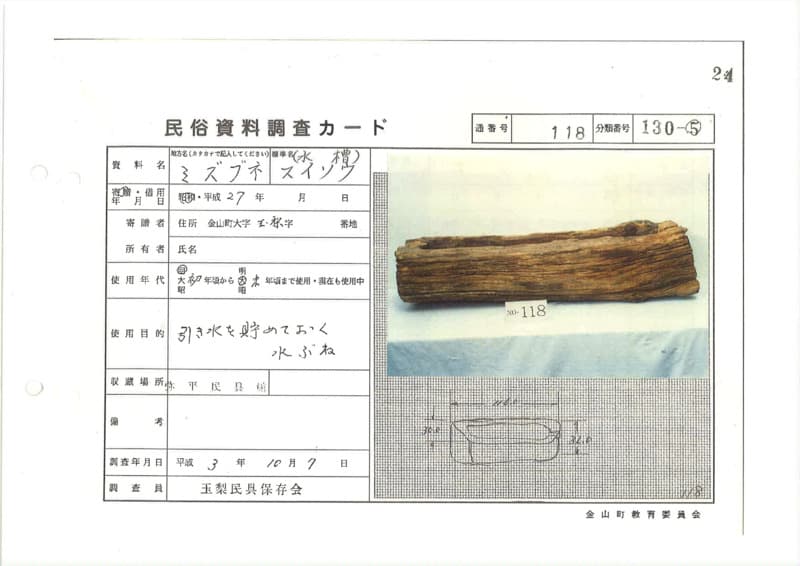 24
民俗資料調査カード
通番号 118 分類番号 130-⑤
資料名 地方名(カタカナで記入してください) ミズブネ 標準名 (水槽) スイソウ
寄贈・借用年月日 昭和・平成 27年 月 日
寄譜者 住所 金山町大字玉梨字 番地
所有者 氏名
使用年代 大昭 初年頃から 明大昭 末年頃まで使用・現在も使用中
使用目的 引き水を貯めておく
水ぶね
収蔵場所 平民具館
備考
調査年月日 平成 3年 10月 7日
調査員 玉梨民具保存会
NO-118
116.0
30.0
32.0
118
金山町教育委員会